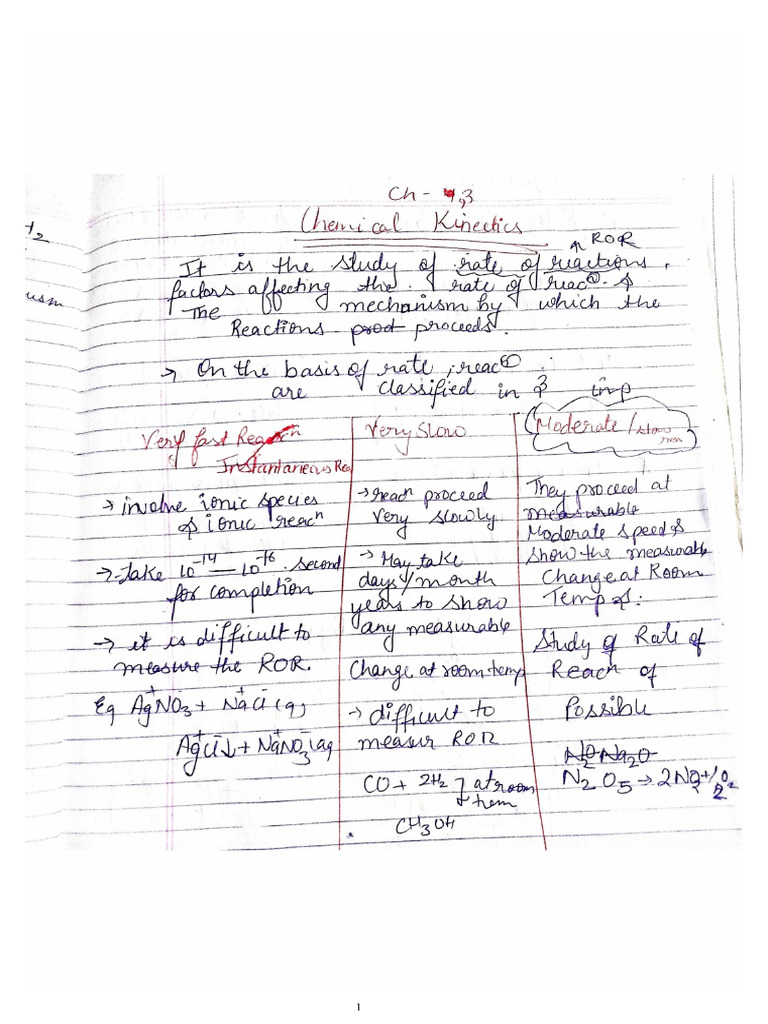 Ch - 3
Chemical Kinectics
↑ ROR
It is the study of rate of reactions,
factors affecting the rate of reacⁿ &
The mechanism by which the
Reactions prod proceeds.
→ On the basis of rate, reacⁿ
are classified in 3 imp
Very fast Reacn
Instantaneous Rea
→ involve ionic species
& ionic reacn
→ take 10⁻¹⁴ — 10⁻¹⁶ second
for completion
→ it is difficult to
measure the ROR.
Eg Ag⁺NO₃⁻ + Na⁺Cl⁻(q)
Ag⁺Cl⁻↓ + Na⁺NO₃⁻(aq
Very Slow
→ reacn proceed
very slowly
→ May take
days/month
years to show
any measurable
Change at room temp
→ difficult to
measur ROR
CO + 2H₂ → at room
tem
CH₃OH
Moderate / slow
rean
They proceed at
measurable
Moderate speed &
show the measurable
Change at Room
Temp &:
Study of Rate of
Reacn of
Possible
N₂O Na₂O
N₂O₅ → 2NO₂ + 1/2 O₂
H₂
usm
1